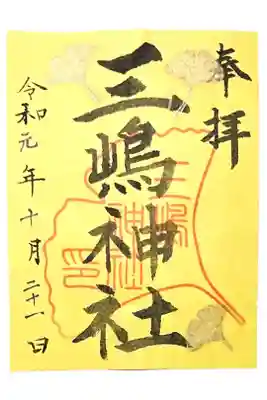 奉拝
三嶋神社
令和元年十月二十一日
三嶋神社印